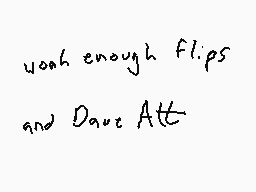 woah enough flips
and Dave Att